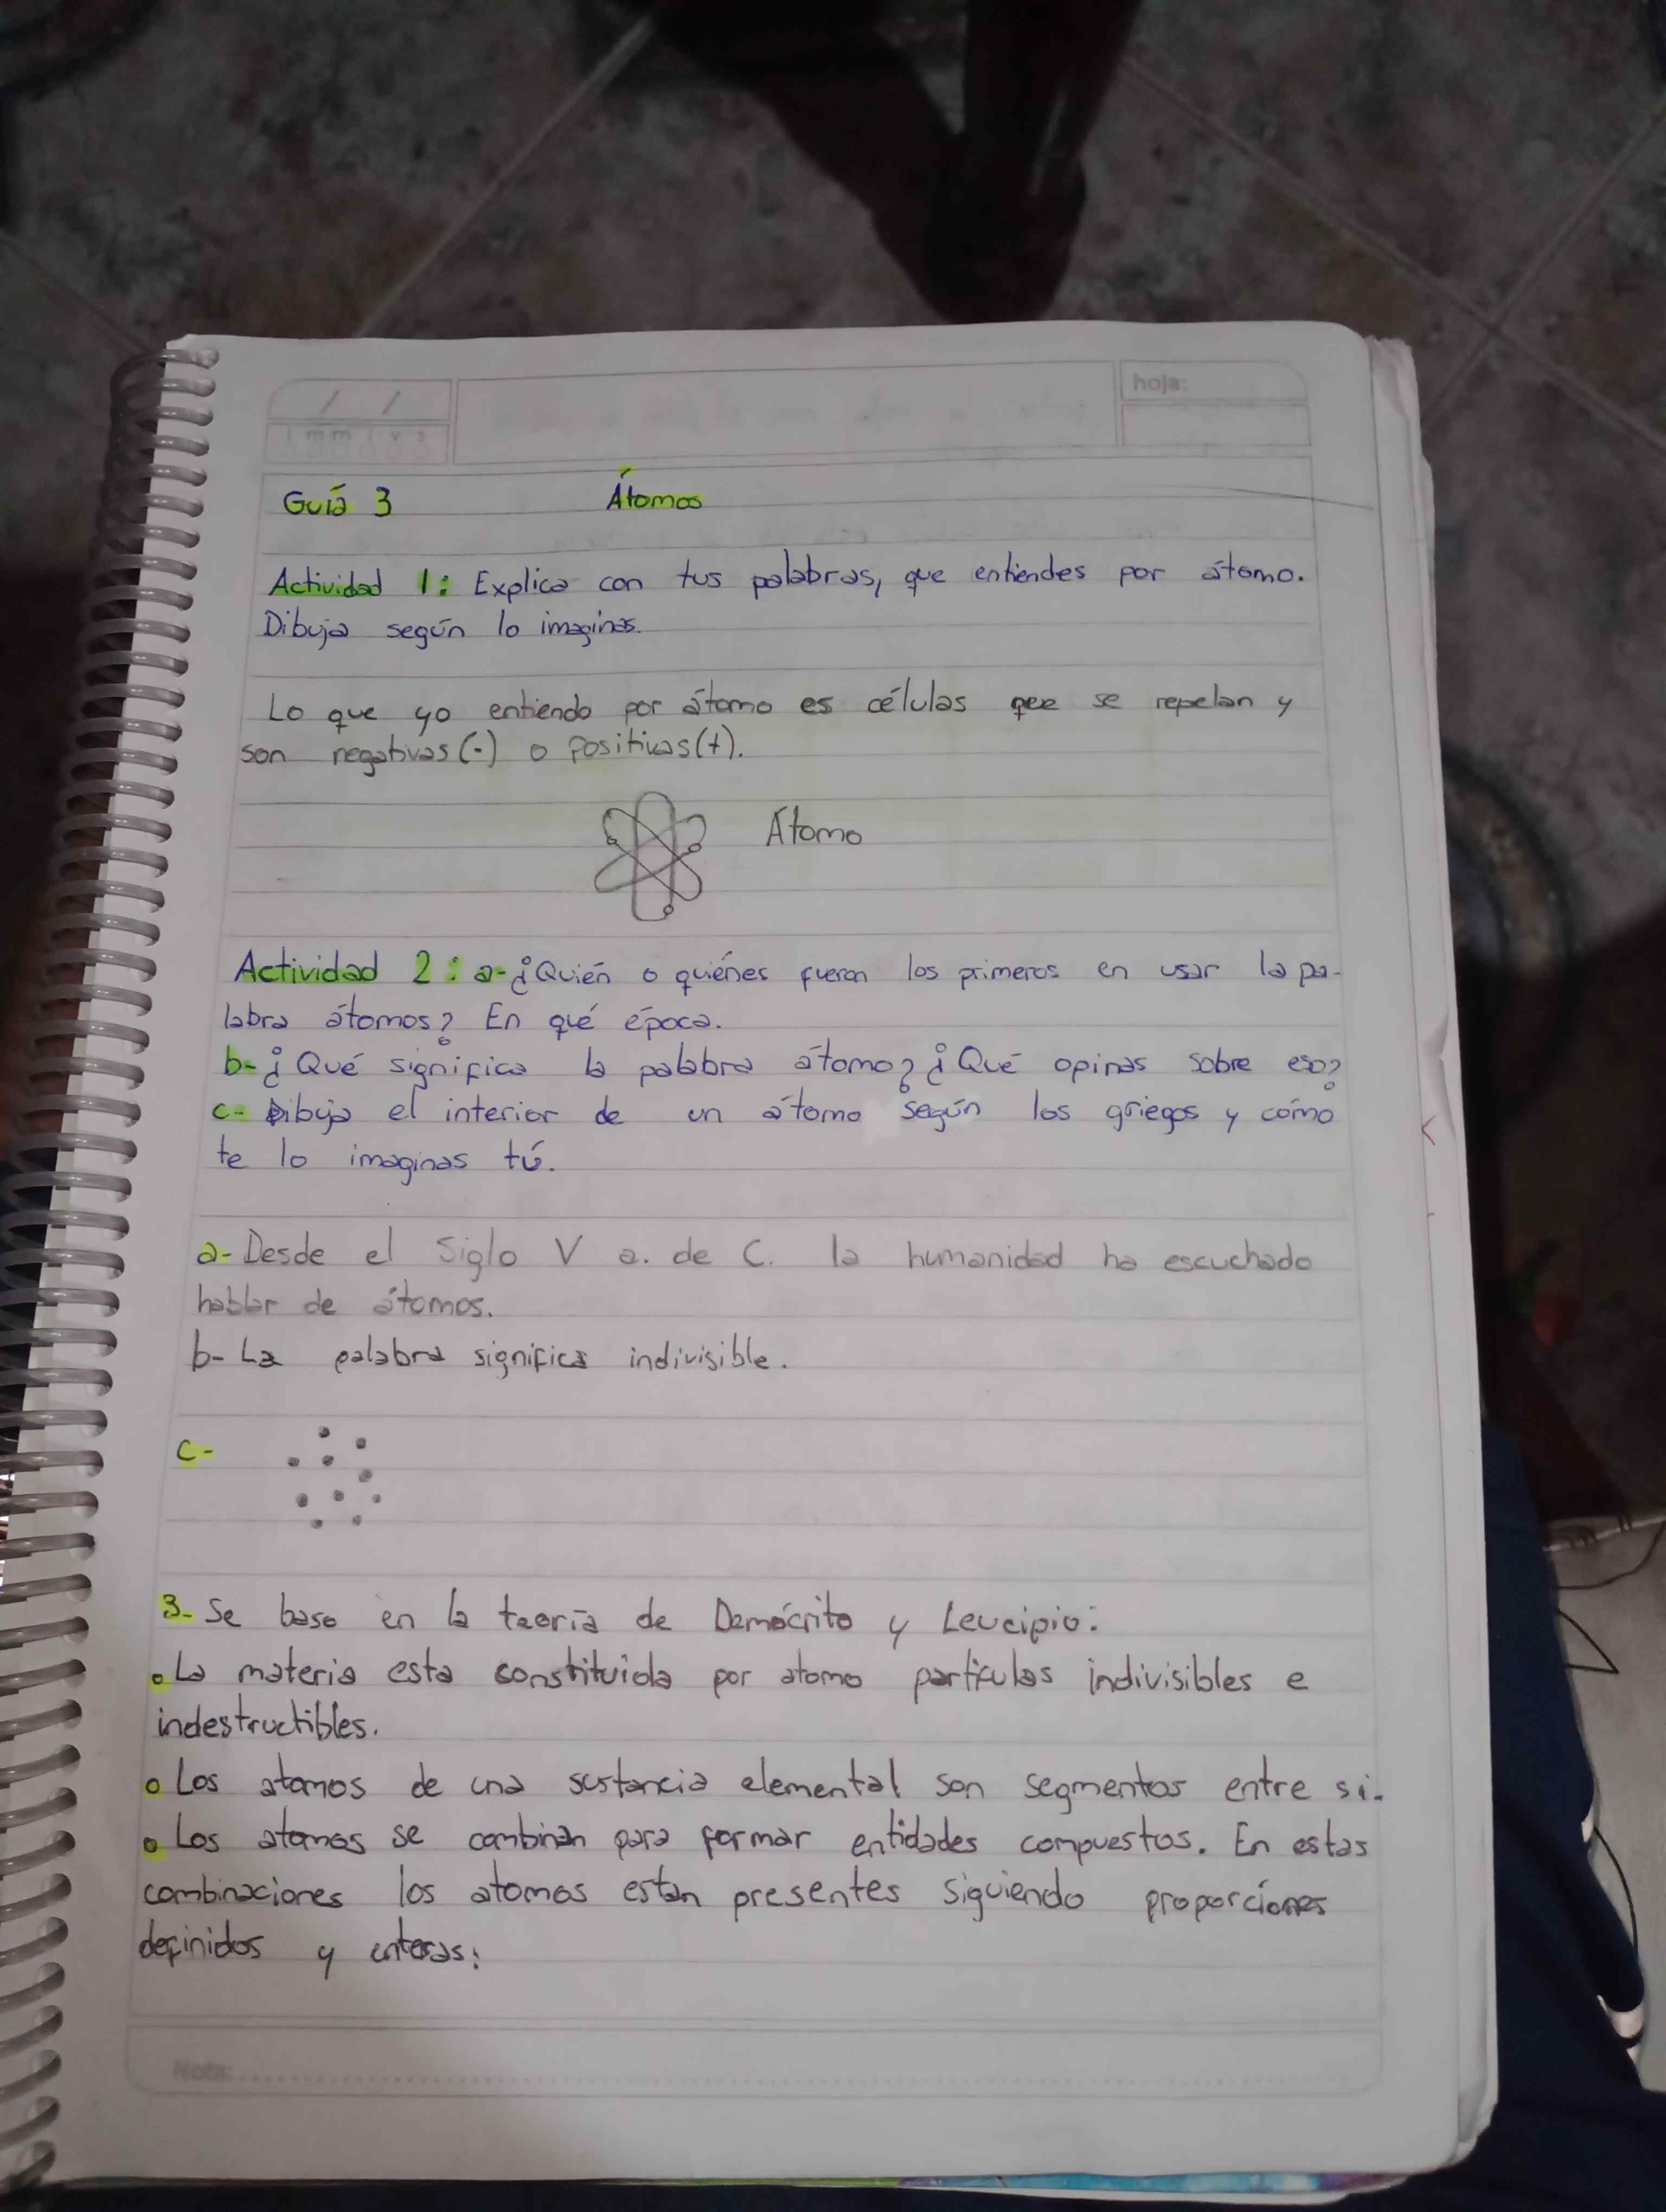 hoja:
Guía 3 Átomos
Actividad 1: Explica con tus palabras, que entiendes por átomo.
Dibuja según lo imaginas.
Lo que yo entiendo por átomo es células que se repelan y
son negativas(-) o positivas(+).
Átomo
Actividad 2: a-¿Quién o quiénes fueron los primeros en usar la pa-
labra átomos? En qué época.
b-¿Qué significa la palabra átomo? ¿Qué opinas sobre eso?
c- Dibuja el interior de un átomo según los griegos y cómo
te lo imaginas tú.
a- Desde el Siglo V a. de C. la humanidad ha escuchado
hablar de átomos.
b- La palabra significa indivisible.
c-
3- Se baso en la teoría de Demócrito y Leucipio:
La materia esta constituida por atomo partículas indivisibles e
indestructibles.
Los atomos de una sustancia elemental son segmentos entre si.
Los atomos se combinan para formar entidades compuestos. En estas
combinaciones los atomos estan presentes siguiendo proporciones
definidos y enteras:
Nota: